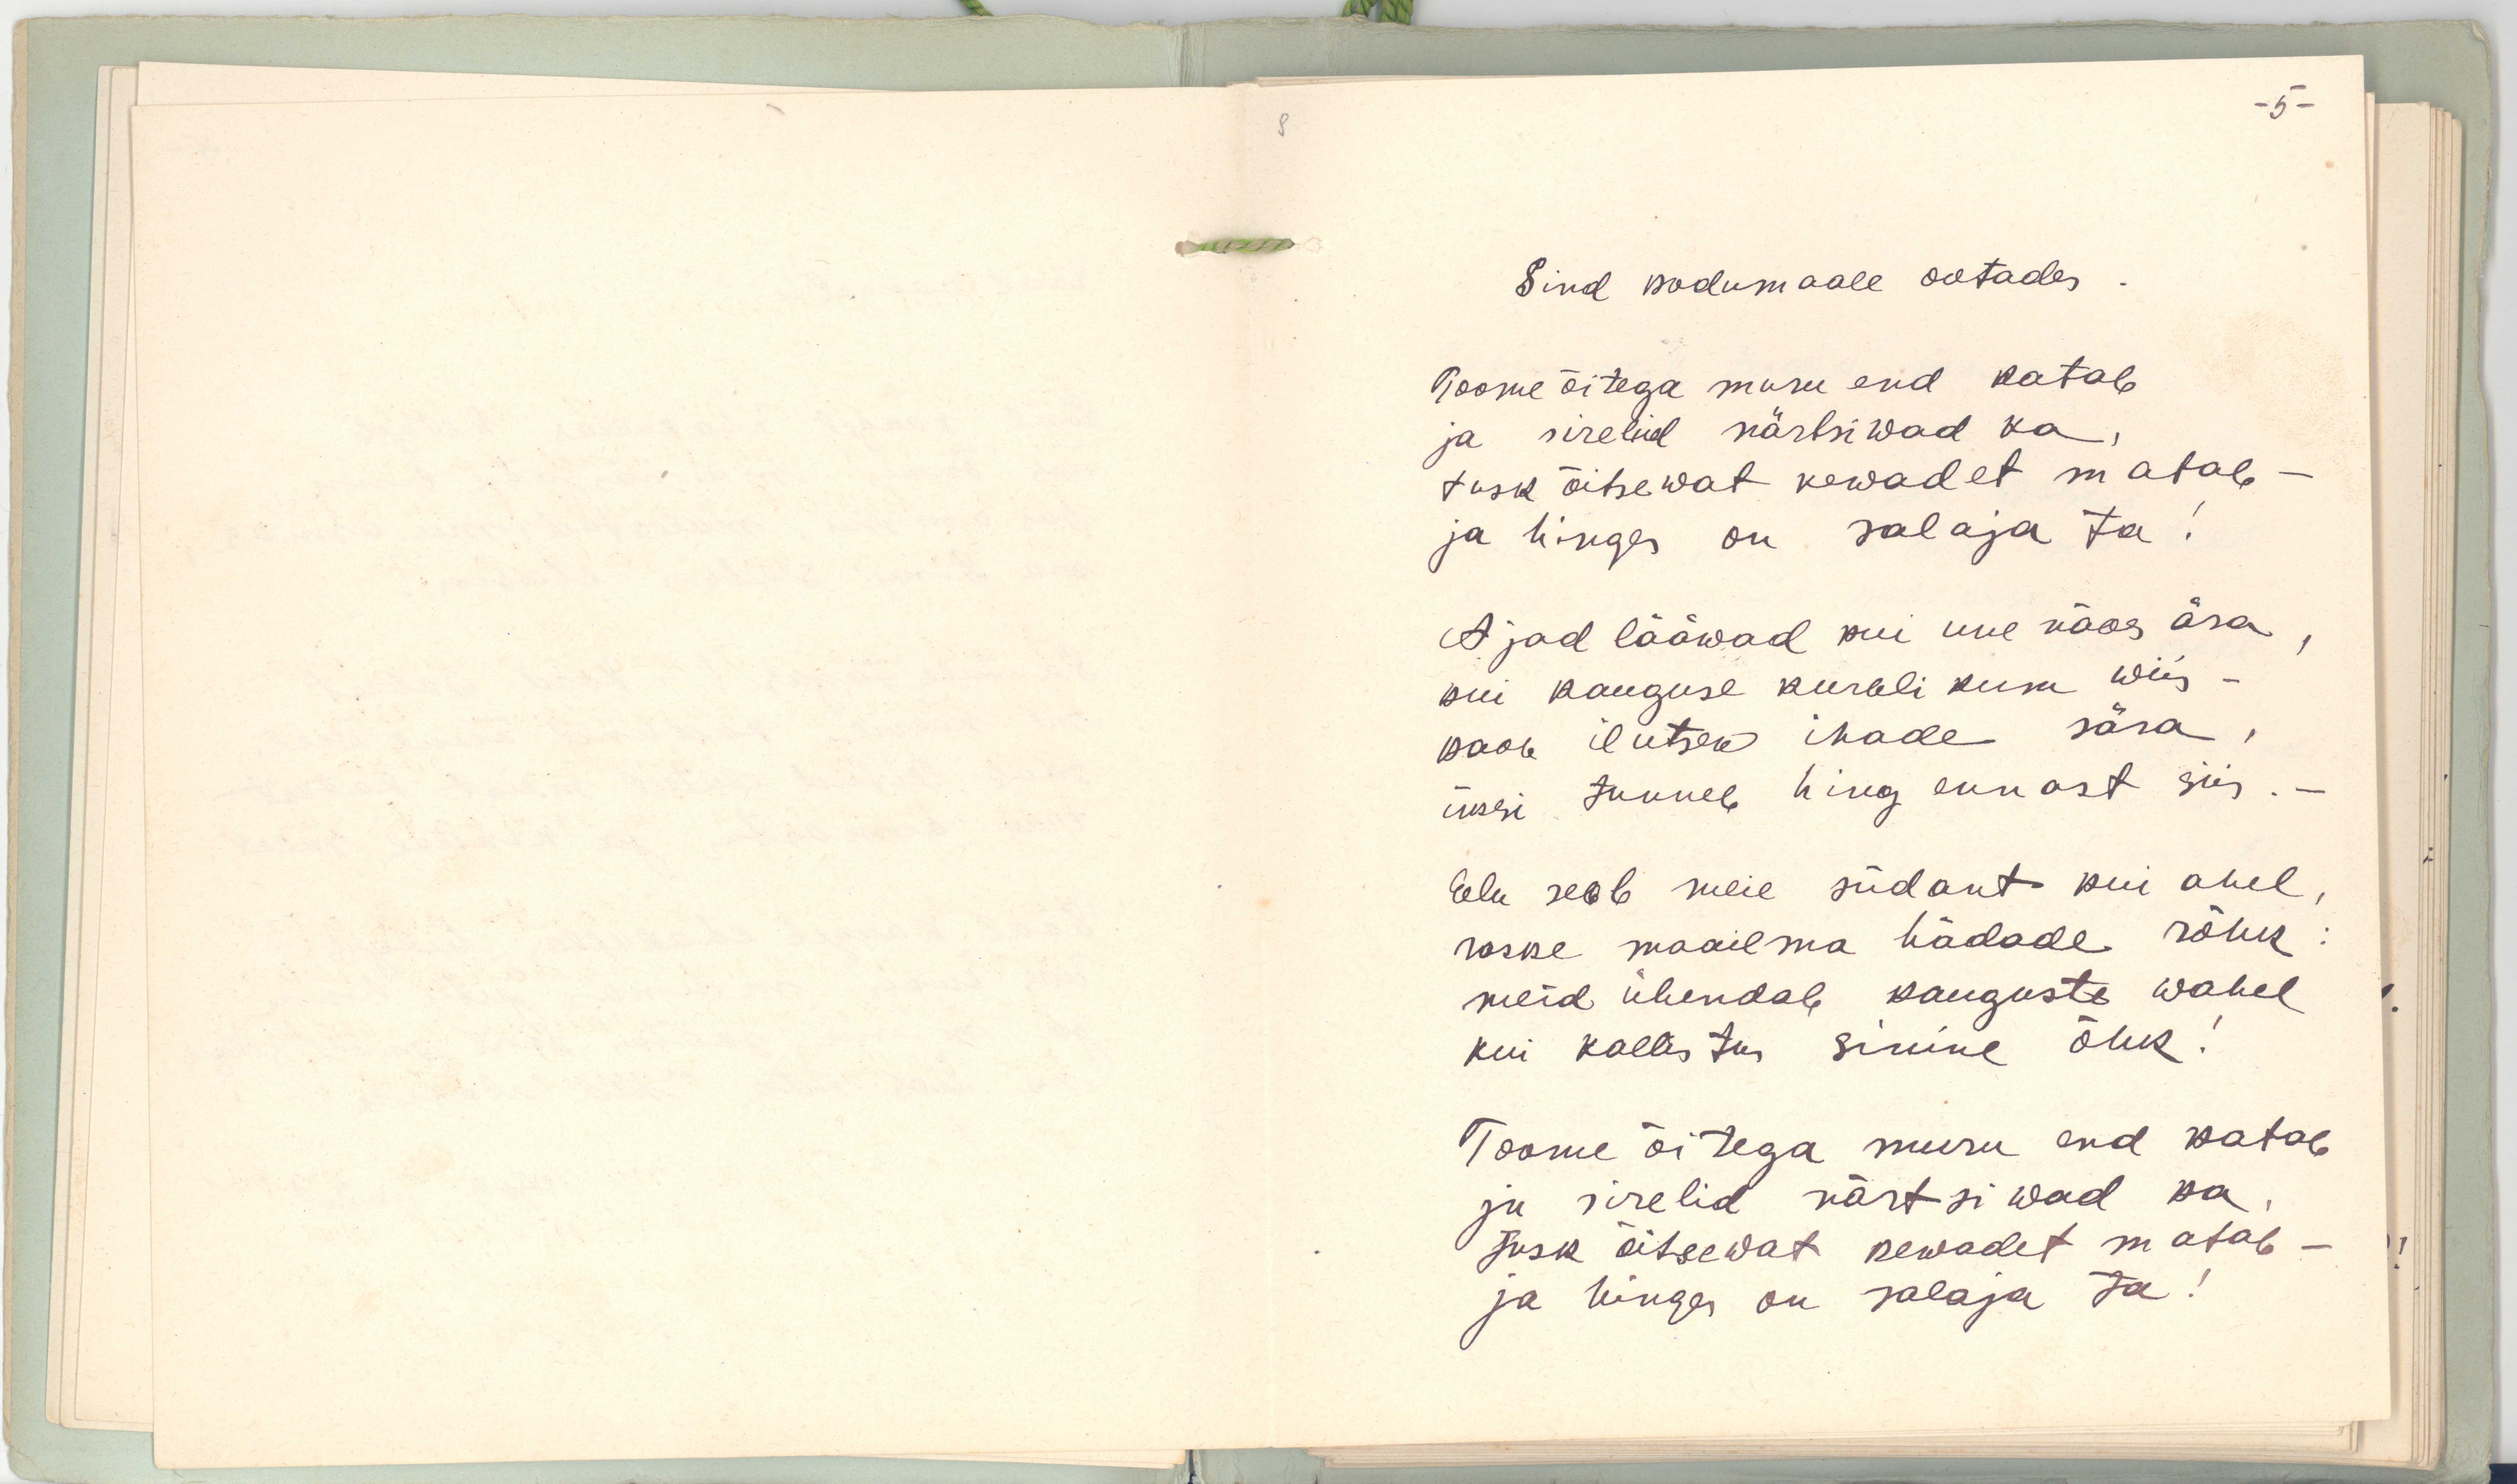 -5-
8
Sind kodumaale ootades.
Toome õitega muru end katab
ja sirelid närtsiwad ka,
tusk õitsewat kewadet matab —
ja hinges on salaja ta!
Ajad lääwad kui une näos ära,
kui kauguse kurbli kum wiis —
kaob ilutsew ihade sära,
üksi tunneb hing ennast siis. —
Elu seob meie südant kui ahel,
raske maailma hädade rõhk:
meid ühendab kauguste wahel
kui kallistus sinine õhk!
Toome õitega muru end katab
ja sirelid närtsiwad ka,
tusk õitsewat kewadet matab —
ja hinges on salaja ta!